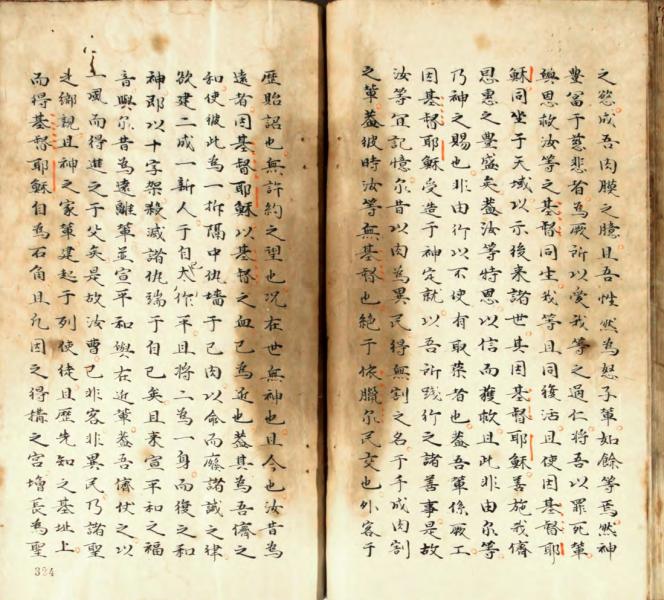 之慾成吾肉膜之臆且吾性然為怒子軰如餘等焉然神
豐冨于慈悲者為厥所以愛我等之過仁將吾以罪死軰
與思救汝等之基督同生我等且同復活且使因基督耶
穌同坐于天域以示後來諸世其因基督耶穌善施我儕
恩惠之豐盛矣葢汝等特恩以信而獲救且此非由尔等
乃神之賜也非由行以不使有取荣者也葢吾軰係厥工
因基督耶穌受造于神定就以吾所踐行之諸善事是故
汝等宜記憶尔昔以肉為異民得無割之名于手成肉割
之軰葢彼時汝等無基督也絕于依臘尔民交也外客于
歷貽詔也無許約之望也况在世無神也且今也汝昔為
遠者因基督耶穌以基督之血已為近也葢其為吾儕之
和使彼此為一拆隔中仇墻于己肉以命而廢諸誡之律
欲建二成一新人于自己作平且將二為一身而復之和
神即以十字架殺滅諸仇端于自已矣且来宣平和之福
音與尔昔為遠離軰並宣平和與右近軰葢吾儕仗之以
一風而得進之于父矣是故汝曹已非客非異民乃諸聖
之鄉親且神之家軰建起于列使徒且歷先知之基址上
而得基督耶穌自為石角且凢因之得搆之宫增長為聖
324